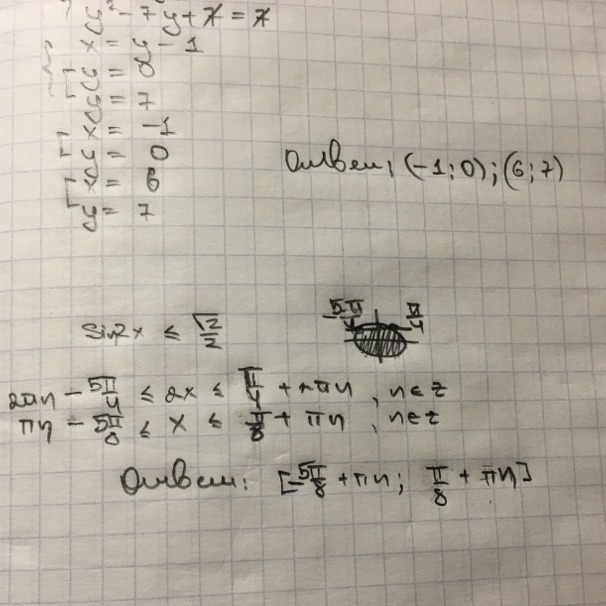 y² - 7y + 7 = 7
x = y - 1
y = 0
y = 7
x = -1
y = 0
x = 6
y = 7
Ответ: (-1; 0); (6; 7)
sin2x ≤ √2/2
-5π/4 π/4
2πn - 5π/4 ≤ 2x ≤ π/4 + 2πn, n∈z
πn - 5π/8 ≤ x ≤ π/8 + πn, n∈z
Ответ: [-5π/8 + πn; π/8 + πn]